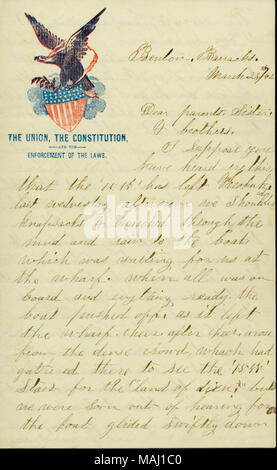 Benton Barracks.
March 26th/62
Dear parents, Sister,
& brothers.
I Suppose you
have heard by this
that the '15th' has left
last wednesday afternoon we Shoulderd
knapsacks & through the
mud and rain to the boats
which was waiting for us at
the wharf. when all was on
board and evything ready. the
boat pushed opp. as it left
the wharf. cheer after cheer arose
from the dense crowd, which had
gathered there to see the '15th'
Start for the "land of dixie" but
we were soon out of hearing for
the boat glided swiftly down
THE UNION, THE CONSTITUTION,
AND THE
ENFORCEMENT OF THE LAWS.
alamy
Image ID: MAJ1C0
www.alamy.com